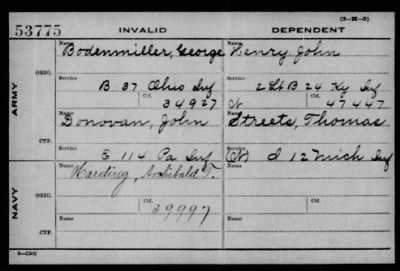 (3-21-5)
53775 INVALID DEPENDENT
ARMY
ORIG.
Name
Bodenmiller, George
Name
Henry, John
Service
B 37 Ohio Inf
Service
2 Lt B 24 Ky Inf
Ctf.
34927
Ctf.
47447
CTF.
Name
Donovan, John
Name
Streets, Thomas
Service
E 114 Pa Inf
Service
D 12 Mich Inf
NAVY
ORIG.
Name
Harding, Archibald T.
Name
Ctf.
29997
Ctf.
CTF.
Name
Name